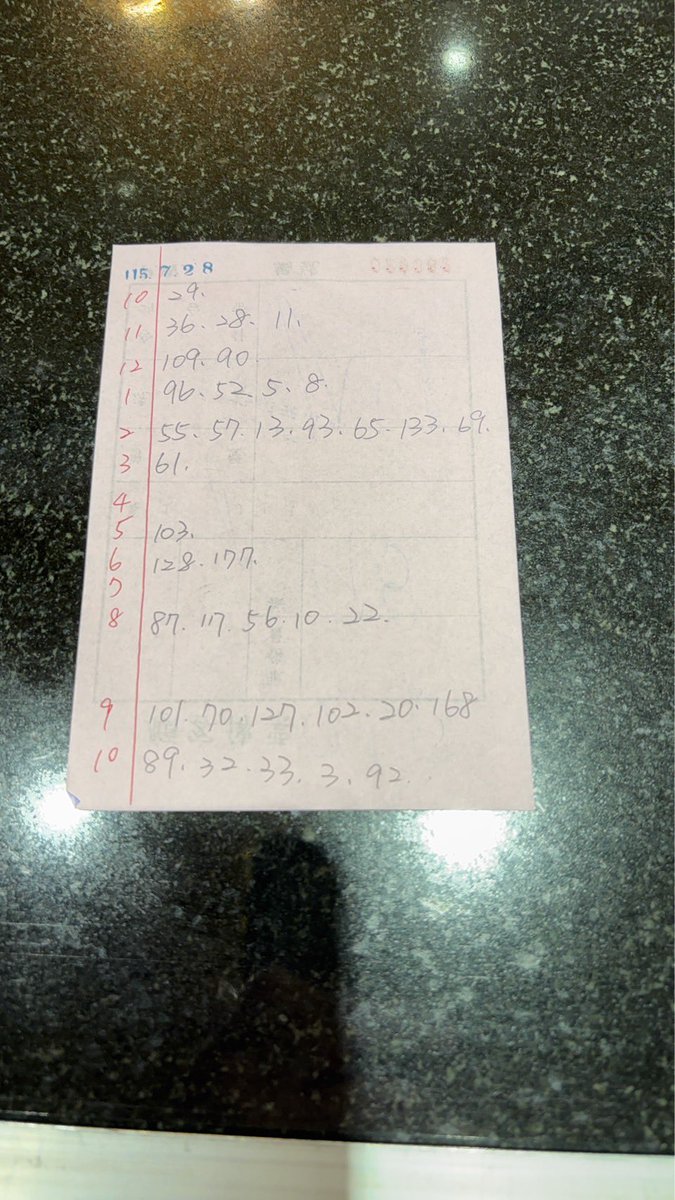 115. 7. 2 8
10 29.
11 36. 28. 11.
12 109. 90.
1 96. 52 5. 8.
2 55. 57. 13. 93. 65. 133. 69.
3 61.
4
5 103.
6 128. 177.
7
8 87. 117. 56. 10. 22.
9 101. 70. 127. 102. 20. 168
10 89. 32. 33. 3. 92.